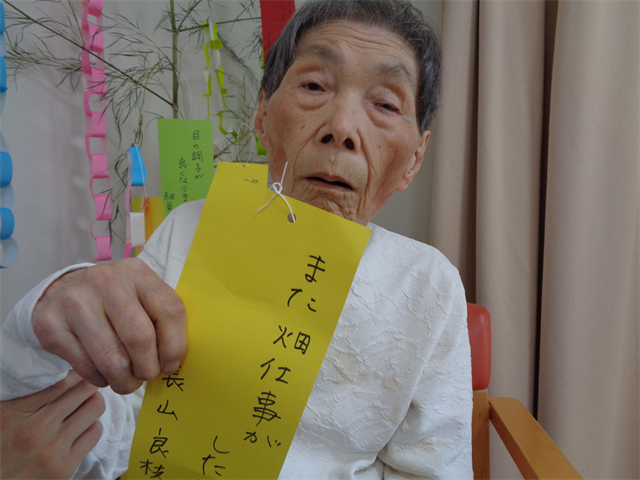 また畑仕事が
した
長山良枝
目の調子が
良くなりま